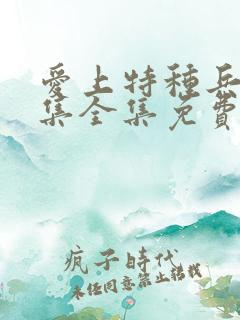 愛上特種兵
集全集免費
瘋子時代
未经同意禁止转载